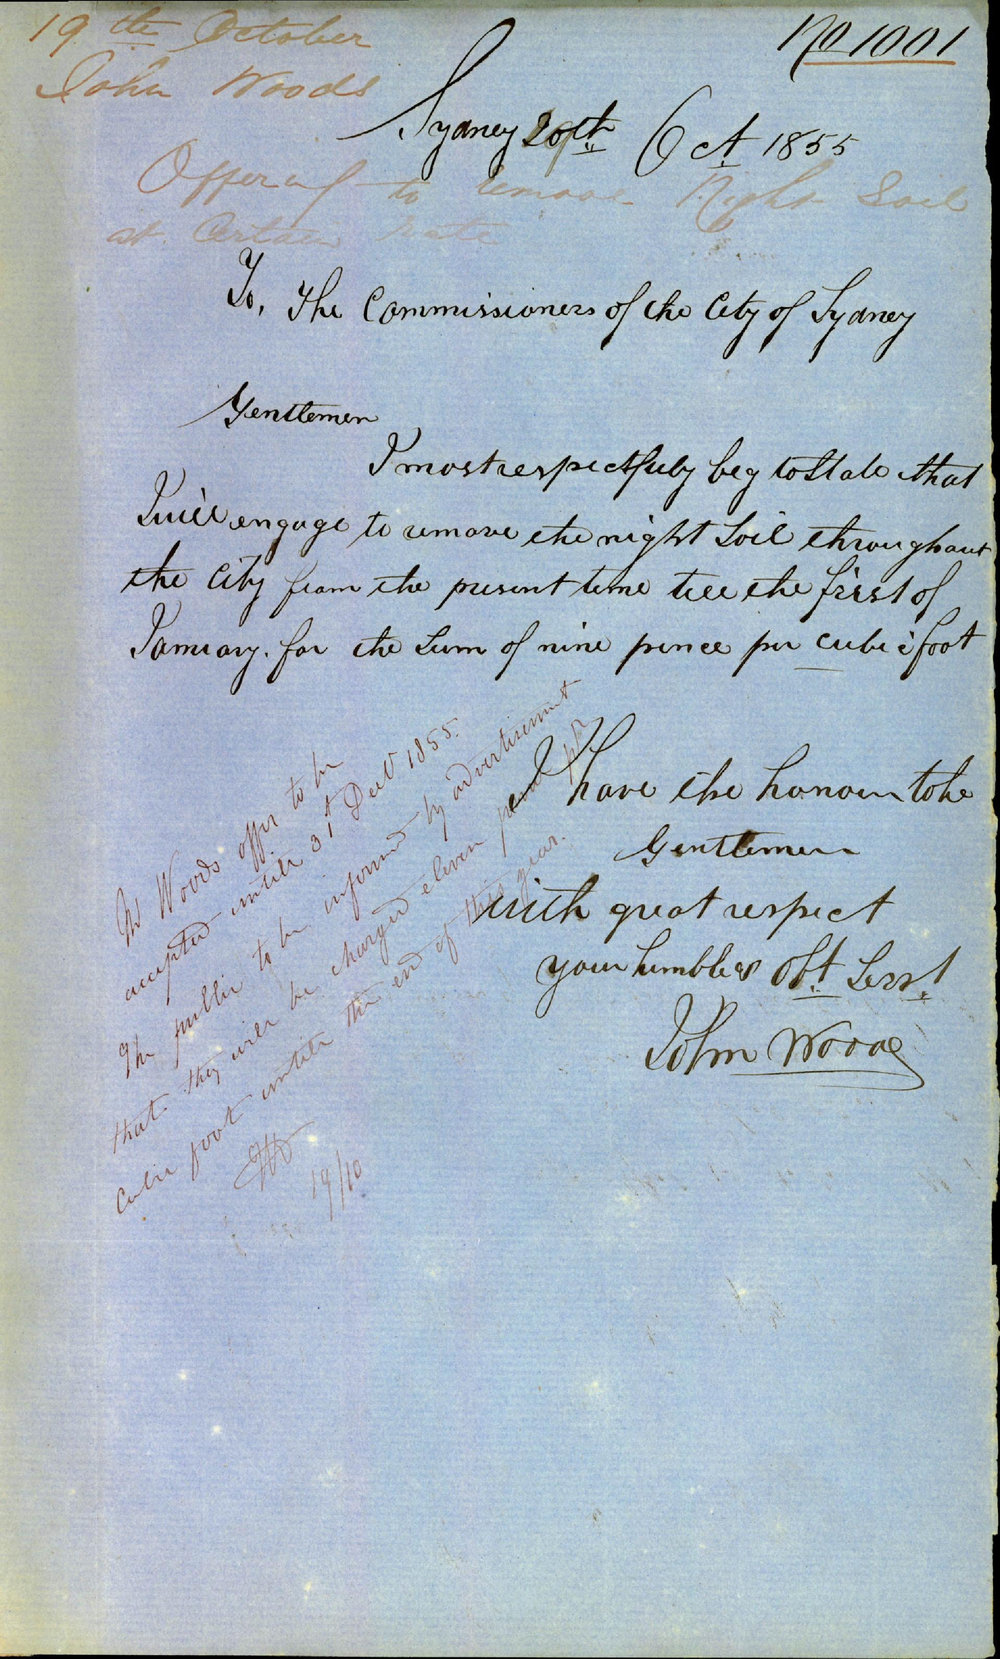 19th October
John Woods
No 1001
Sydney 20th Oct 1855
Offering to remove Night Soil
at Certain rate
To, The Commissioners of the City of Sydney
Gentlemen
I most respectfuly beg to State that
I will engage to remove the night Soil throughout
the City from the present time till the first of
January. for the Sum of nine pence per cubic foot
I have the honour to be
Gentlemen
with great respect
your humble Obt. Servt.
John Woods
Mr Woods offer to be
accepted untill 31st Decr 1855.
The public to be informed by advertisement
that they will be charged eleven pence per
Cubic foot untill the end of this year.
19/10